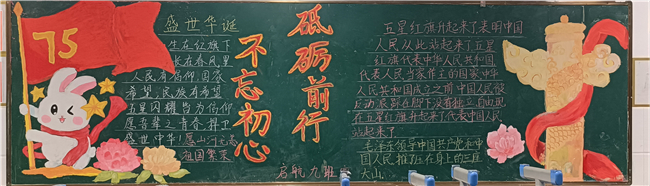 75
盛世华诞
生在红旗下
长在春风里
人民有信仰 国家
有希望 民族有希望
五星闪耀皆为信仰
愿吾辈之青春 捍卫
盛世中华！愿山河无恙
祖国繁荣
不忘初心
砥砺前行
启航九班
五星红旗升起来了表明中国
人民从此站起来了五星
红旗代表中华人民共和国
代表人民当家作主的国家中华
人民共和国成立之前中国人民被
反动派剥削 没有独立自由 现
在五星红旗升起来了代表中国人民
站起来了
毛泽东领导中国共产党和中
国人民推了压在身上的三座
大山